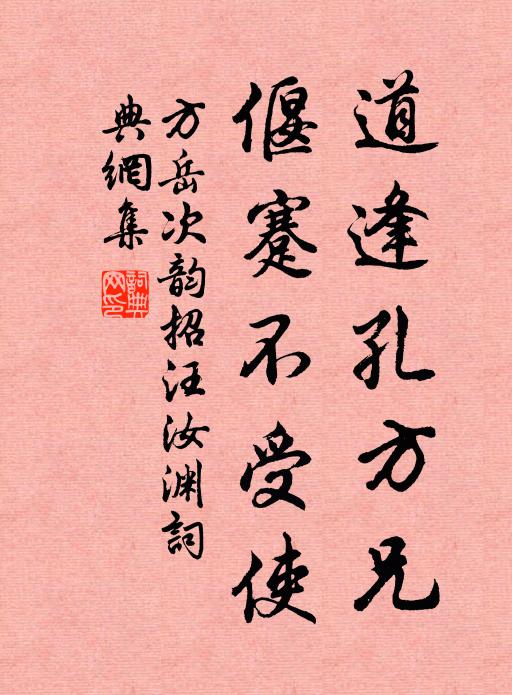 道逢孔方兄
偃蹇不受使
方岳次韵招汪汝渊詞
典網集
詞典网印